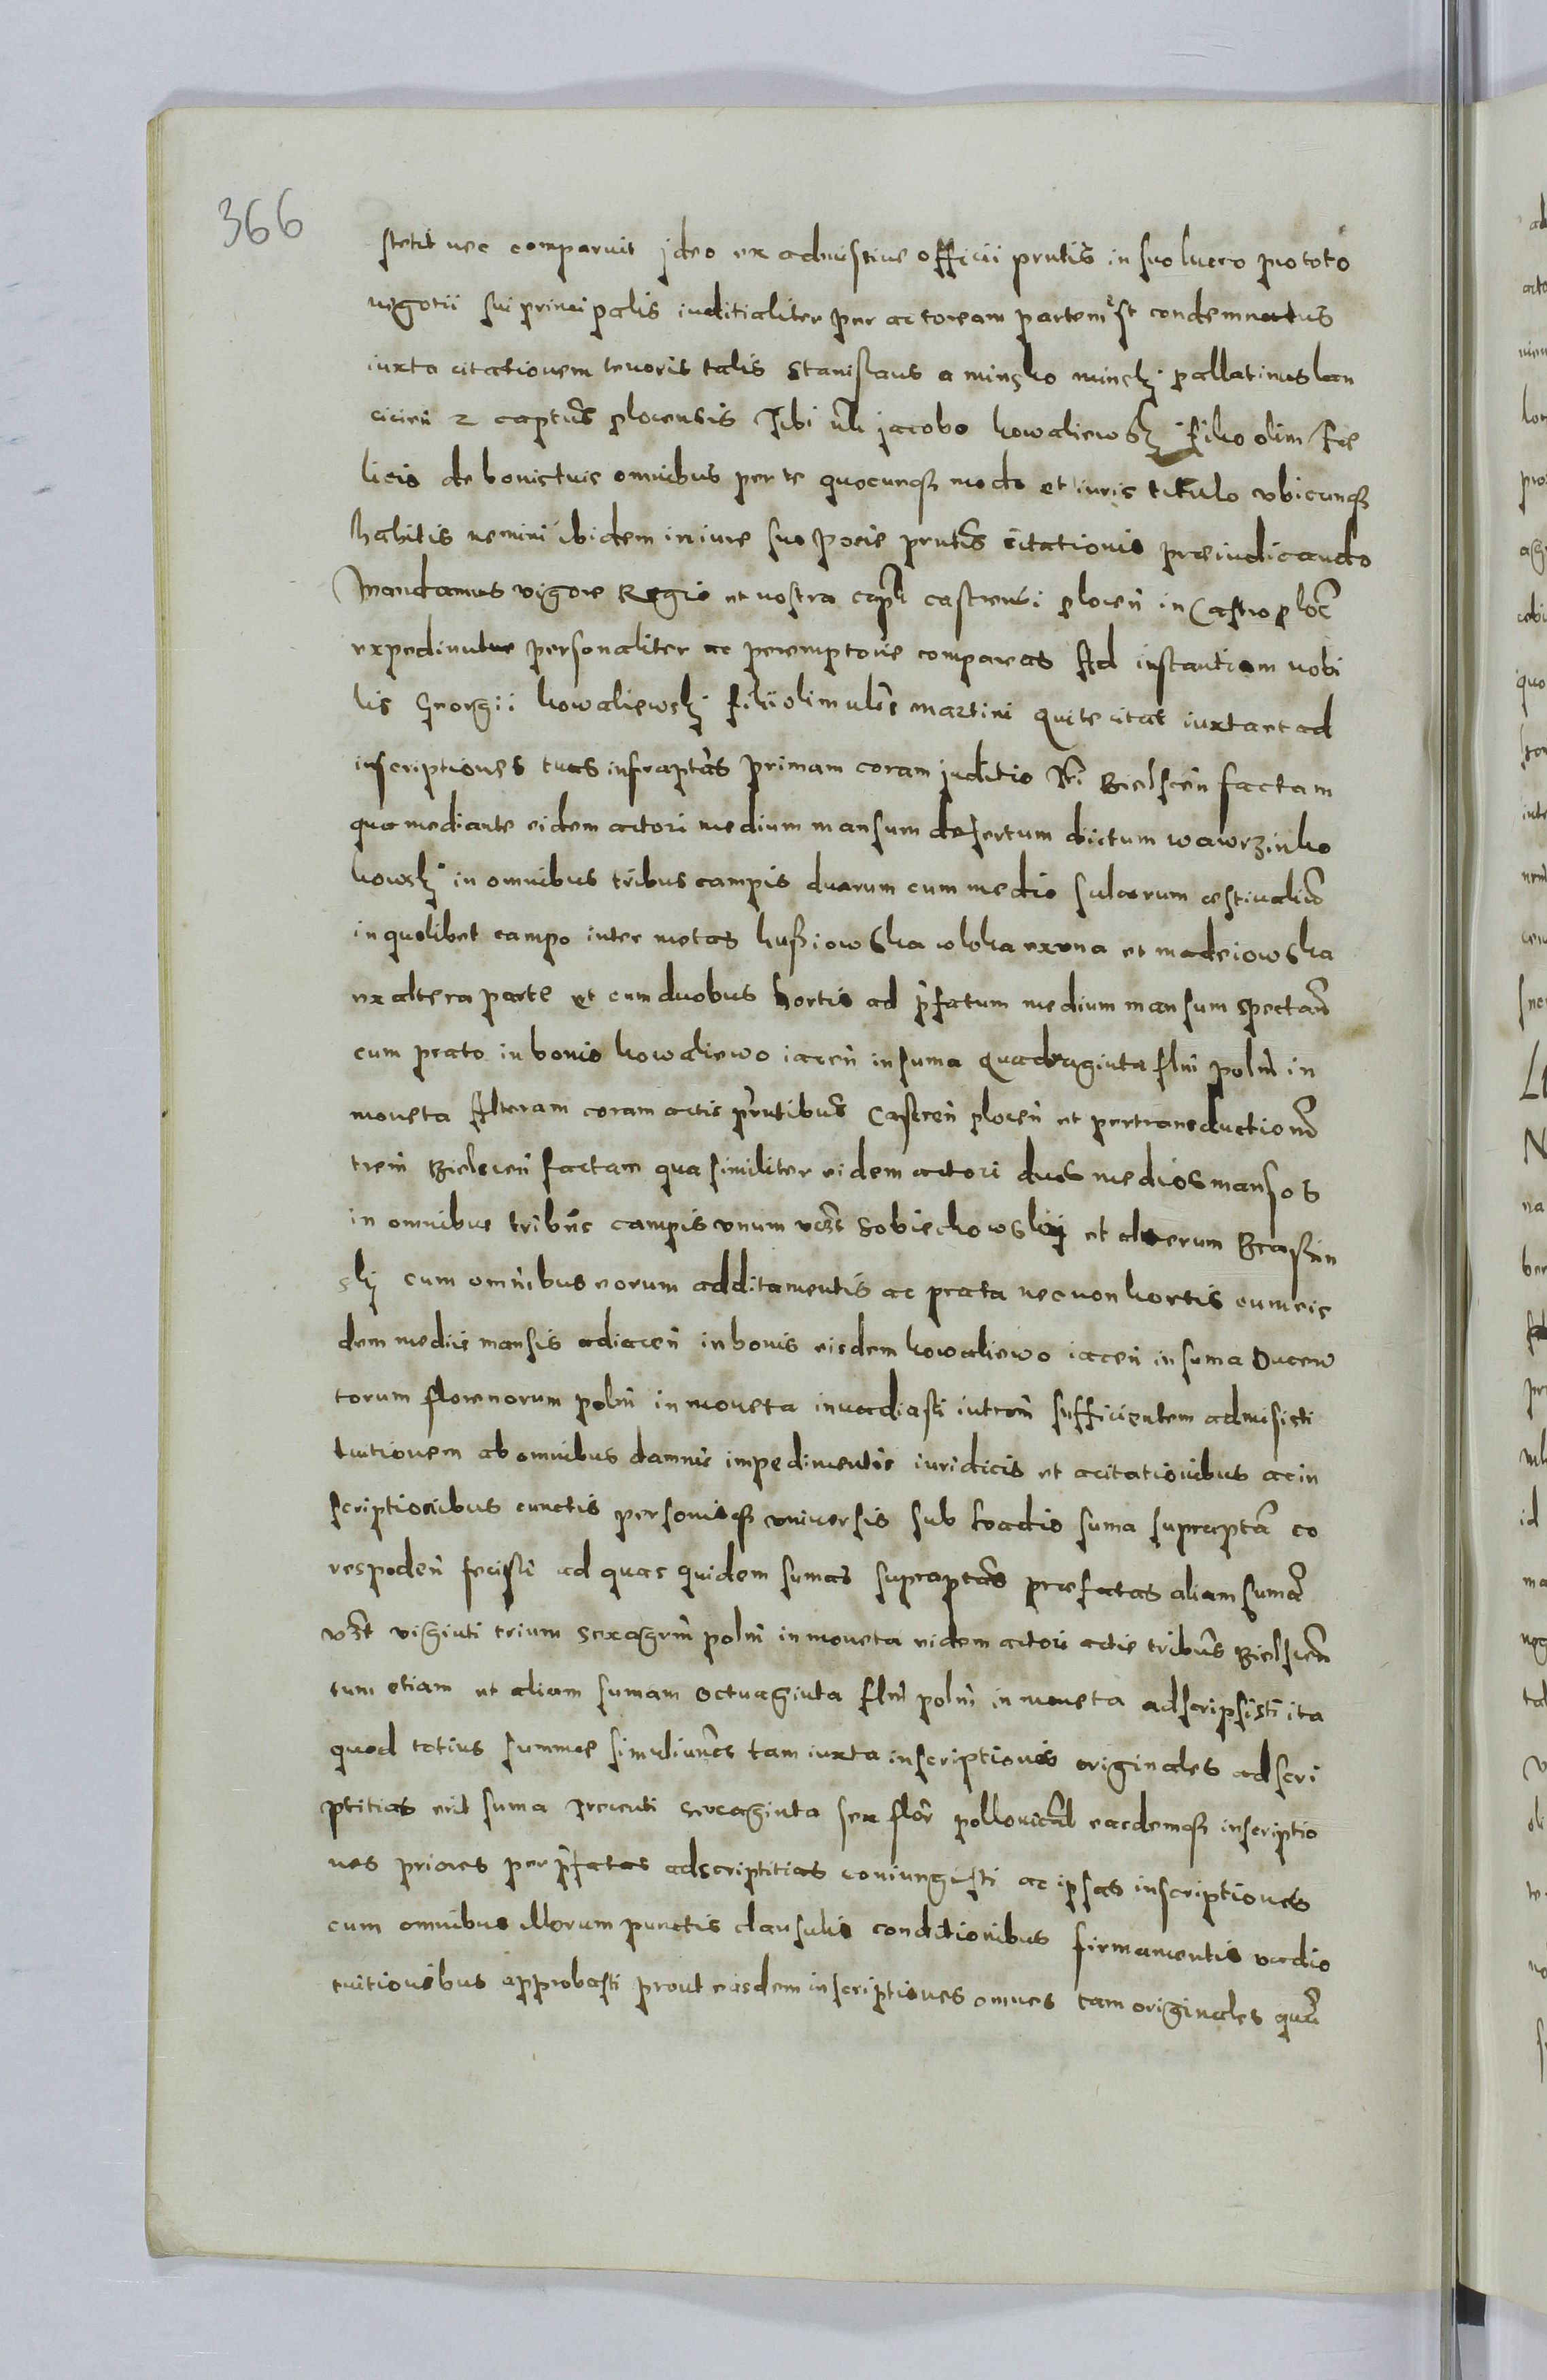 366
stetit nec comparuit jdeo ex admistine officii prntis in suo lucro pro toto
negotii sui principalis iuditialiter per actoream partem est condemnatus
iuxta citationem tenoris talis Stanislaus a minsko minskj pallatinus lan
cicien z captus plocensis Tibi nli jacobo kowaliewskj filio olim Fae
licis de bonis tuis omnibus per te quocunqz modo et iuris titulo vbicunqz
habitis nemini ibidem in iure suo serie prntis citationis praeiudicando
Mandamus vigore Regio et nostra capli castrensi plocen in Castro ploc
expedinntur personaliter ac peremptorie compareas Ad instantiam nobi
lis Georgii kowaliewskj filii olim nlis martini qui te citat iuxta et ad
inscriptiones tuas infraptas primam coram juditio tri Bielscen factam
qua mediante eidem actori medium mansum desertum dictum wawrzinko
kowskj in omnibus tribus campis duarum cum medio sulcorum aestivaliu
in quolibet campo inter metas kussiowska wloka ex una et madeiowska
ex altera parte et cum duobus hortis ad pfatum medium mansum spectan
cum prato in bonis kowaliewo iacen in suma quadraginta flni polni in
moneta Alteram coram actis prntibus Castren plocen et per transductione
trem Bielscen factam qua similiter eidem actori duos medios mansos
in omnibus tribus campis vnum vczt Sobieckowskij et alterum Brassin
skj cum omnibus eorum additamentis ac prata nec non hortis cum eis
dem mediis mansis adiacen in bonis eisdem kowaliewo iacen in suma Ducen
torum florenorum poln in moneta invadiasti introm sufficientem admisisti
tuitionem ab omnibus damnis impedimentis iuridicis et acitationibus ac in
scriptionibus cunctis personisqz vniversis sub vadio suma supraptam co
respoden fecisti ad quas quidem sumas supraptas praefatas aliam suma
vzt viginti trium sexagem polni in moneta eidem actori actis tribus Bielscen
tum etiam et aliam sumam octuaginta flni polni in moneta adscripsisti ita
quod totius summae simuliunctes tam iuxta inscriptiones originales adscri
ptitias erit suma trecenti sexaginta sex flor pollonical easdemqz inscriptio
nes priores per pfatas adscriptitias coniungisti ac ipsas inscriptiones
cum omnibus illorum punctis clausulis conditionibus firmamentis vadio
tuitionibus approbasti prout easdem inscriptiones omnes tam originales quam